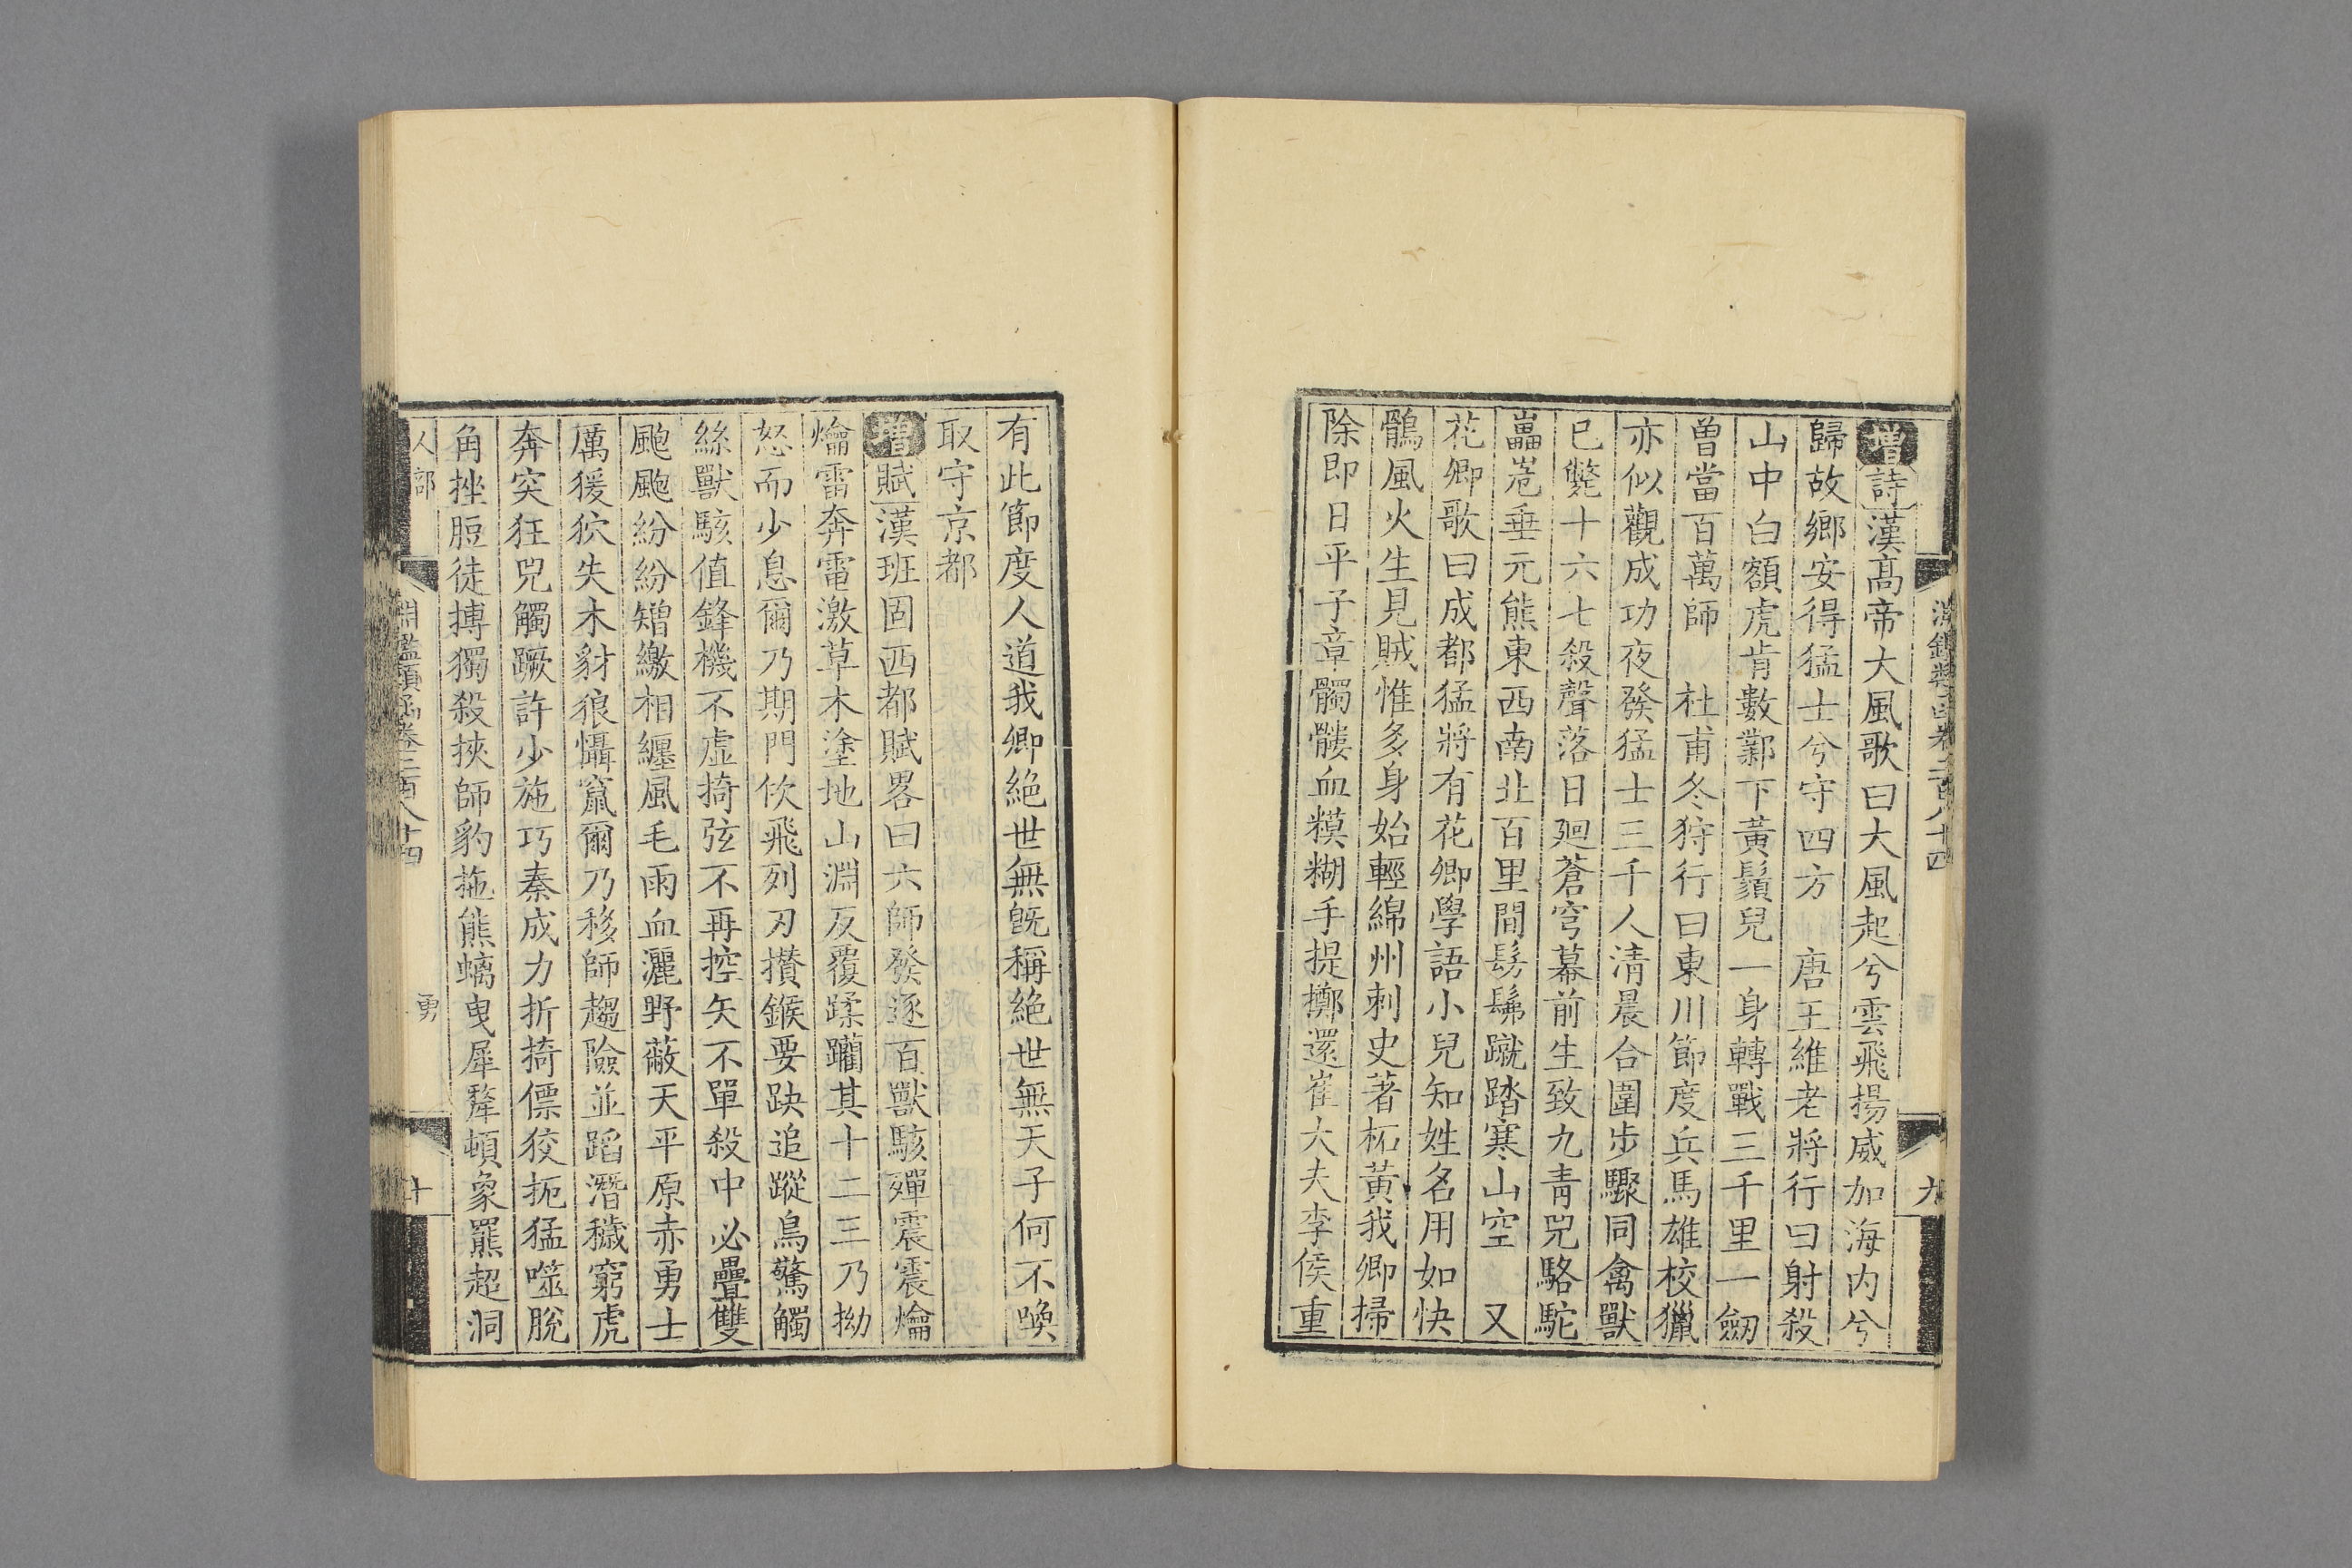 增詩漢高帝大風歌曰大風起兮雲飛揚威加海内兮
歸故鄉安得猛士兮守四方　唐王維老將行曰射殺
山中白額虎肯數鄴下黃鬚兒一身轉戰三千里一劒
曾當百萬師　杜甫冬狩行曰東川節度兵馬雄校獵
亦似觀成功夜發猛士三千人清晨合圍步驟同禽獸
已斃十六七殺聲落日廻蒼穹幕前生致九青兕駱駝
㠥峞垂元熊東西南北百里間髣髴蹴踏寒山空　又
花卿歌曰成都猛將有花卿學語小兒知姓名用如快
鶻風火生見賊惟多身始輕綿州刺史著柘黃我卿掃
除即日平子章髑髏血糢糊手提擲還崔大夫李侯重
九
有此節度人道我卿絕世無旣稱絕世無天子何不喚
取守京都
增賦漢班固西都賦畧曰六師發逐百獸駭殫震震爚
爚雷奔電激草木塗地山淵反覆蹂躪其十二三乃拗
怒而少息爾乃期門佽飛列刃攢鍭要趹追蹤鳥驚觸
絲獸駭值鋒機不虛掎弦不再控矢不單殺中必疊雙
颮颮紛紛矰繳相纏風毛雨血灑野蔽天平原赤勇士
厲猨狖失木豺狼懾竄爾乃移師趨險並蹈潛穢窮虎
奔突狂兕觸蹶許少施巧秦成力折掎僄狡扼猛噬脫
角挫脰徒搏獨殺挾師豹拖熊螭曳犀犛頓象羆超洞
人部
淵鑑類函卷二百八十四
勇
十